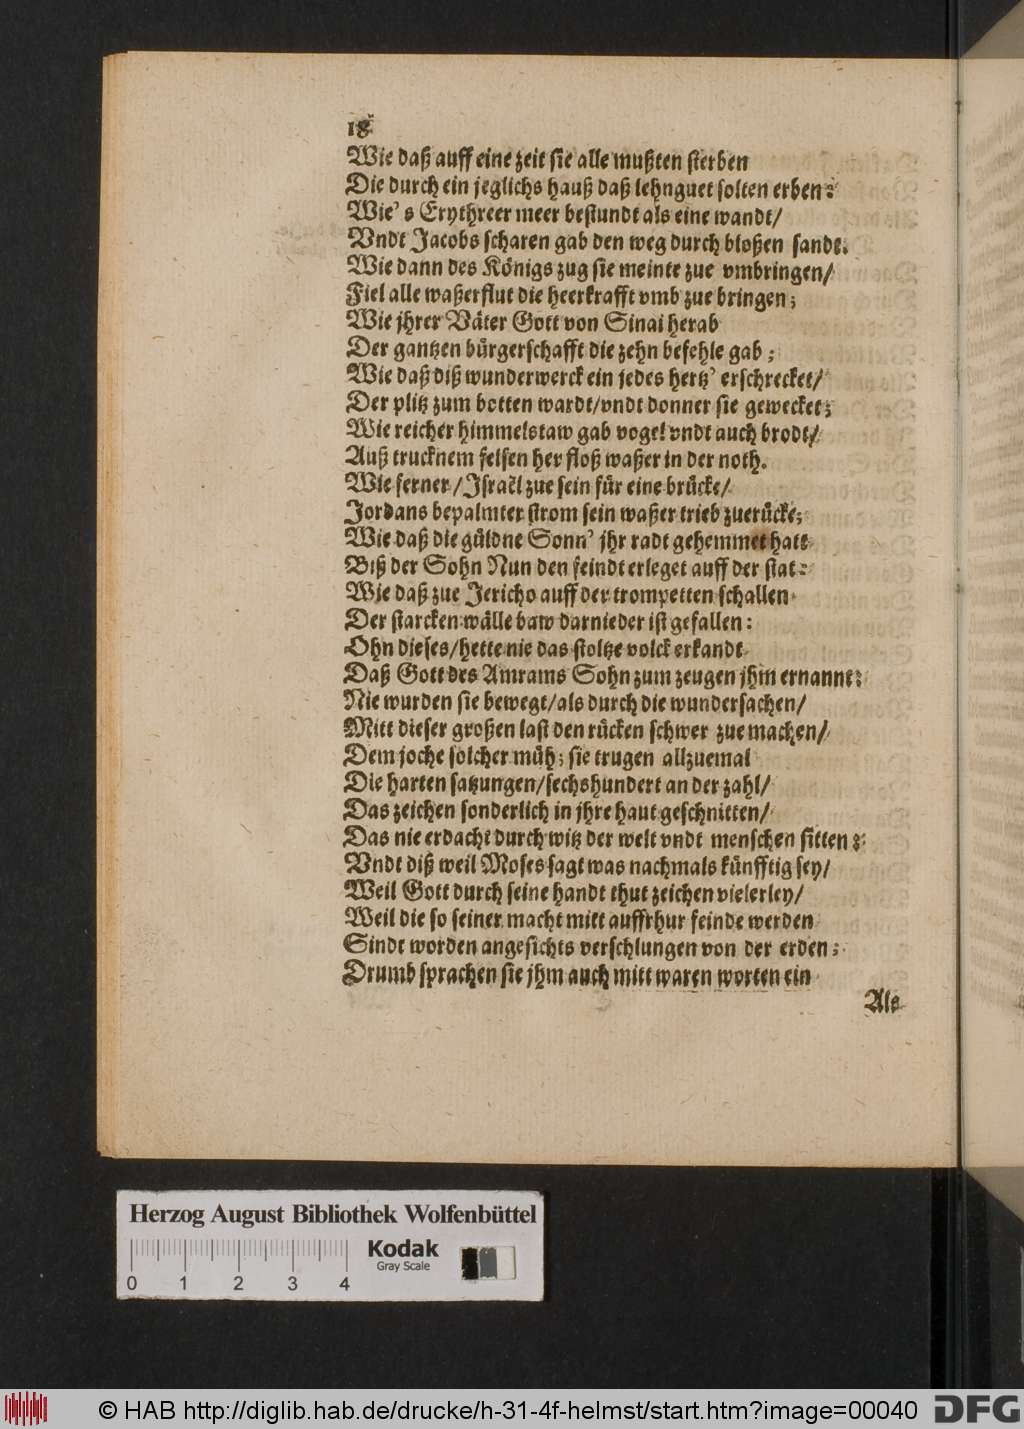 18
Wie daß auff eine zeit sie alle mußten sterben
Die durch ein jeglichs hauß daß lehnguet solten erben:
Wie's Erythreer meer bestundt als eine wandt/
Vndt Jacobs scharen gab den weg durch bloßen sandt.
Wie dann des Königs zug sie meinte zue vmbringen/
Fiel alle waßerflut die heerkrafft vmb zue bringen;
Wie jhrer Väter Gott von Sinai herab
Der gantzen bürgerschafft die zehn befehle gab;
Wie daß diß wunderwerck ein jedes hertz' erschrecket/
Der plitz zum botten wardt/vndt donner sie gewecket;
Wie reicher himmelstaw gab vogel vndt auch brodt/
Auß trucknem felsen her floß waßer in der noth.
Wie ferner/Israël zue sein für eine brücke/
Jordans bepalmter strom sein waßer trieb zuerücke;
Wie daß die güldne Sonn' jhr radt gehemmet hatt
Biß der Sohn Nun den feindt erleget auff der stat:
Wie daß zue Jericho auff der trompetten schallen
Der starcken wälle baw darnieder ist gefallen:
Ohn dieses/hette nie das stoltze volck erkandt
Daß Gott des Amrams Sohn zum zeugen jhm ernannt:
Nie wurden sie bewegt/als durch die wundersachen/
Mitt dieser großen last den rücken schwer zue machen/
Dem joche solcher müh; sie trugen allzuemal
Die harten satzungen/sechshundert an der zahl/
Das zeichen sonderlich in jhre haut geschnitten/
Das nie erdacht durch witz der welt vndt menschen sitten:
Vndt diß weil Moses sagt was nachmals künfftig sey/
Weil Gott durch seine handt thut zeichen vielerley/
Weil die so seiner macht mitt auffrhur feinde werden
Sindt worden angesichts verschlungen von der erden;
Drumb sprachen sie jhm auch mitt waren worten ein
Als
Herzog August Bibliothek Wolfenbüttel
Kodak
Gray Scale
0 1 2 3 4
© HAB http://diglib.hab.de/drucke/h-31-4f-helmst/start.htm?image=00040
DFG